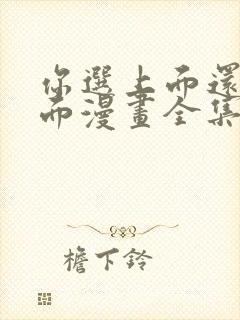 你選上而還
而漫畫全集
檐下鈴